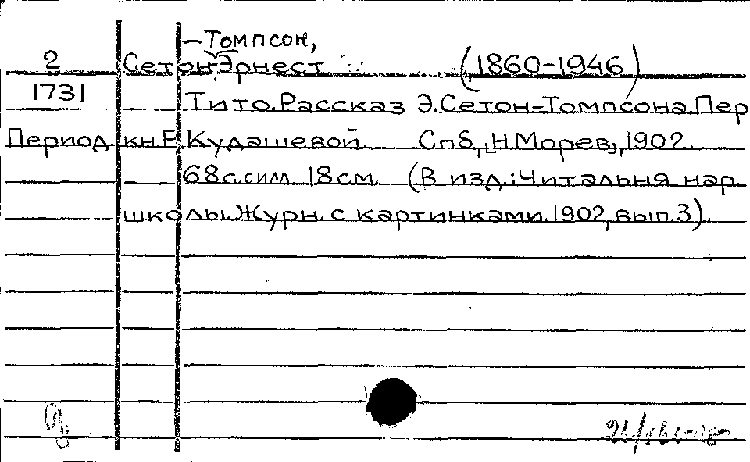 -Томпсон,
2 Сетон Эрнест (1860-1946)
1731 Тито. Рассказ Э. Сетон-Томпсона. Пер
Период кн. Е. Кудашевой. Спб., Н. Морев, 1902.
68 с. с ил. 18 см. (В изд.: Читальня нар
школы. Журн. с картинками. 1902, вып. 3).